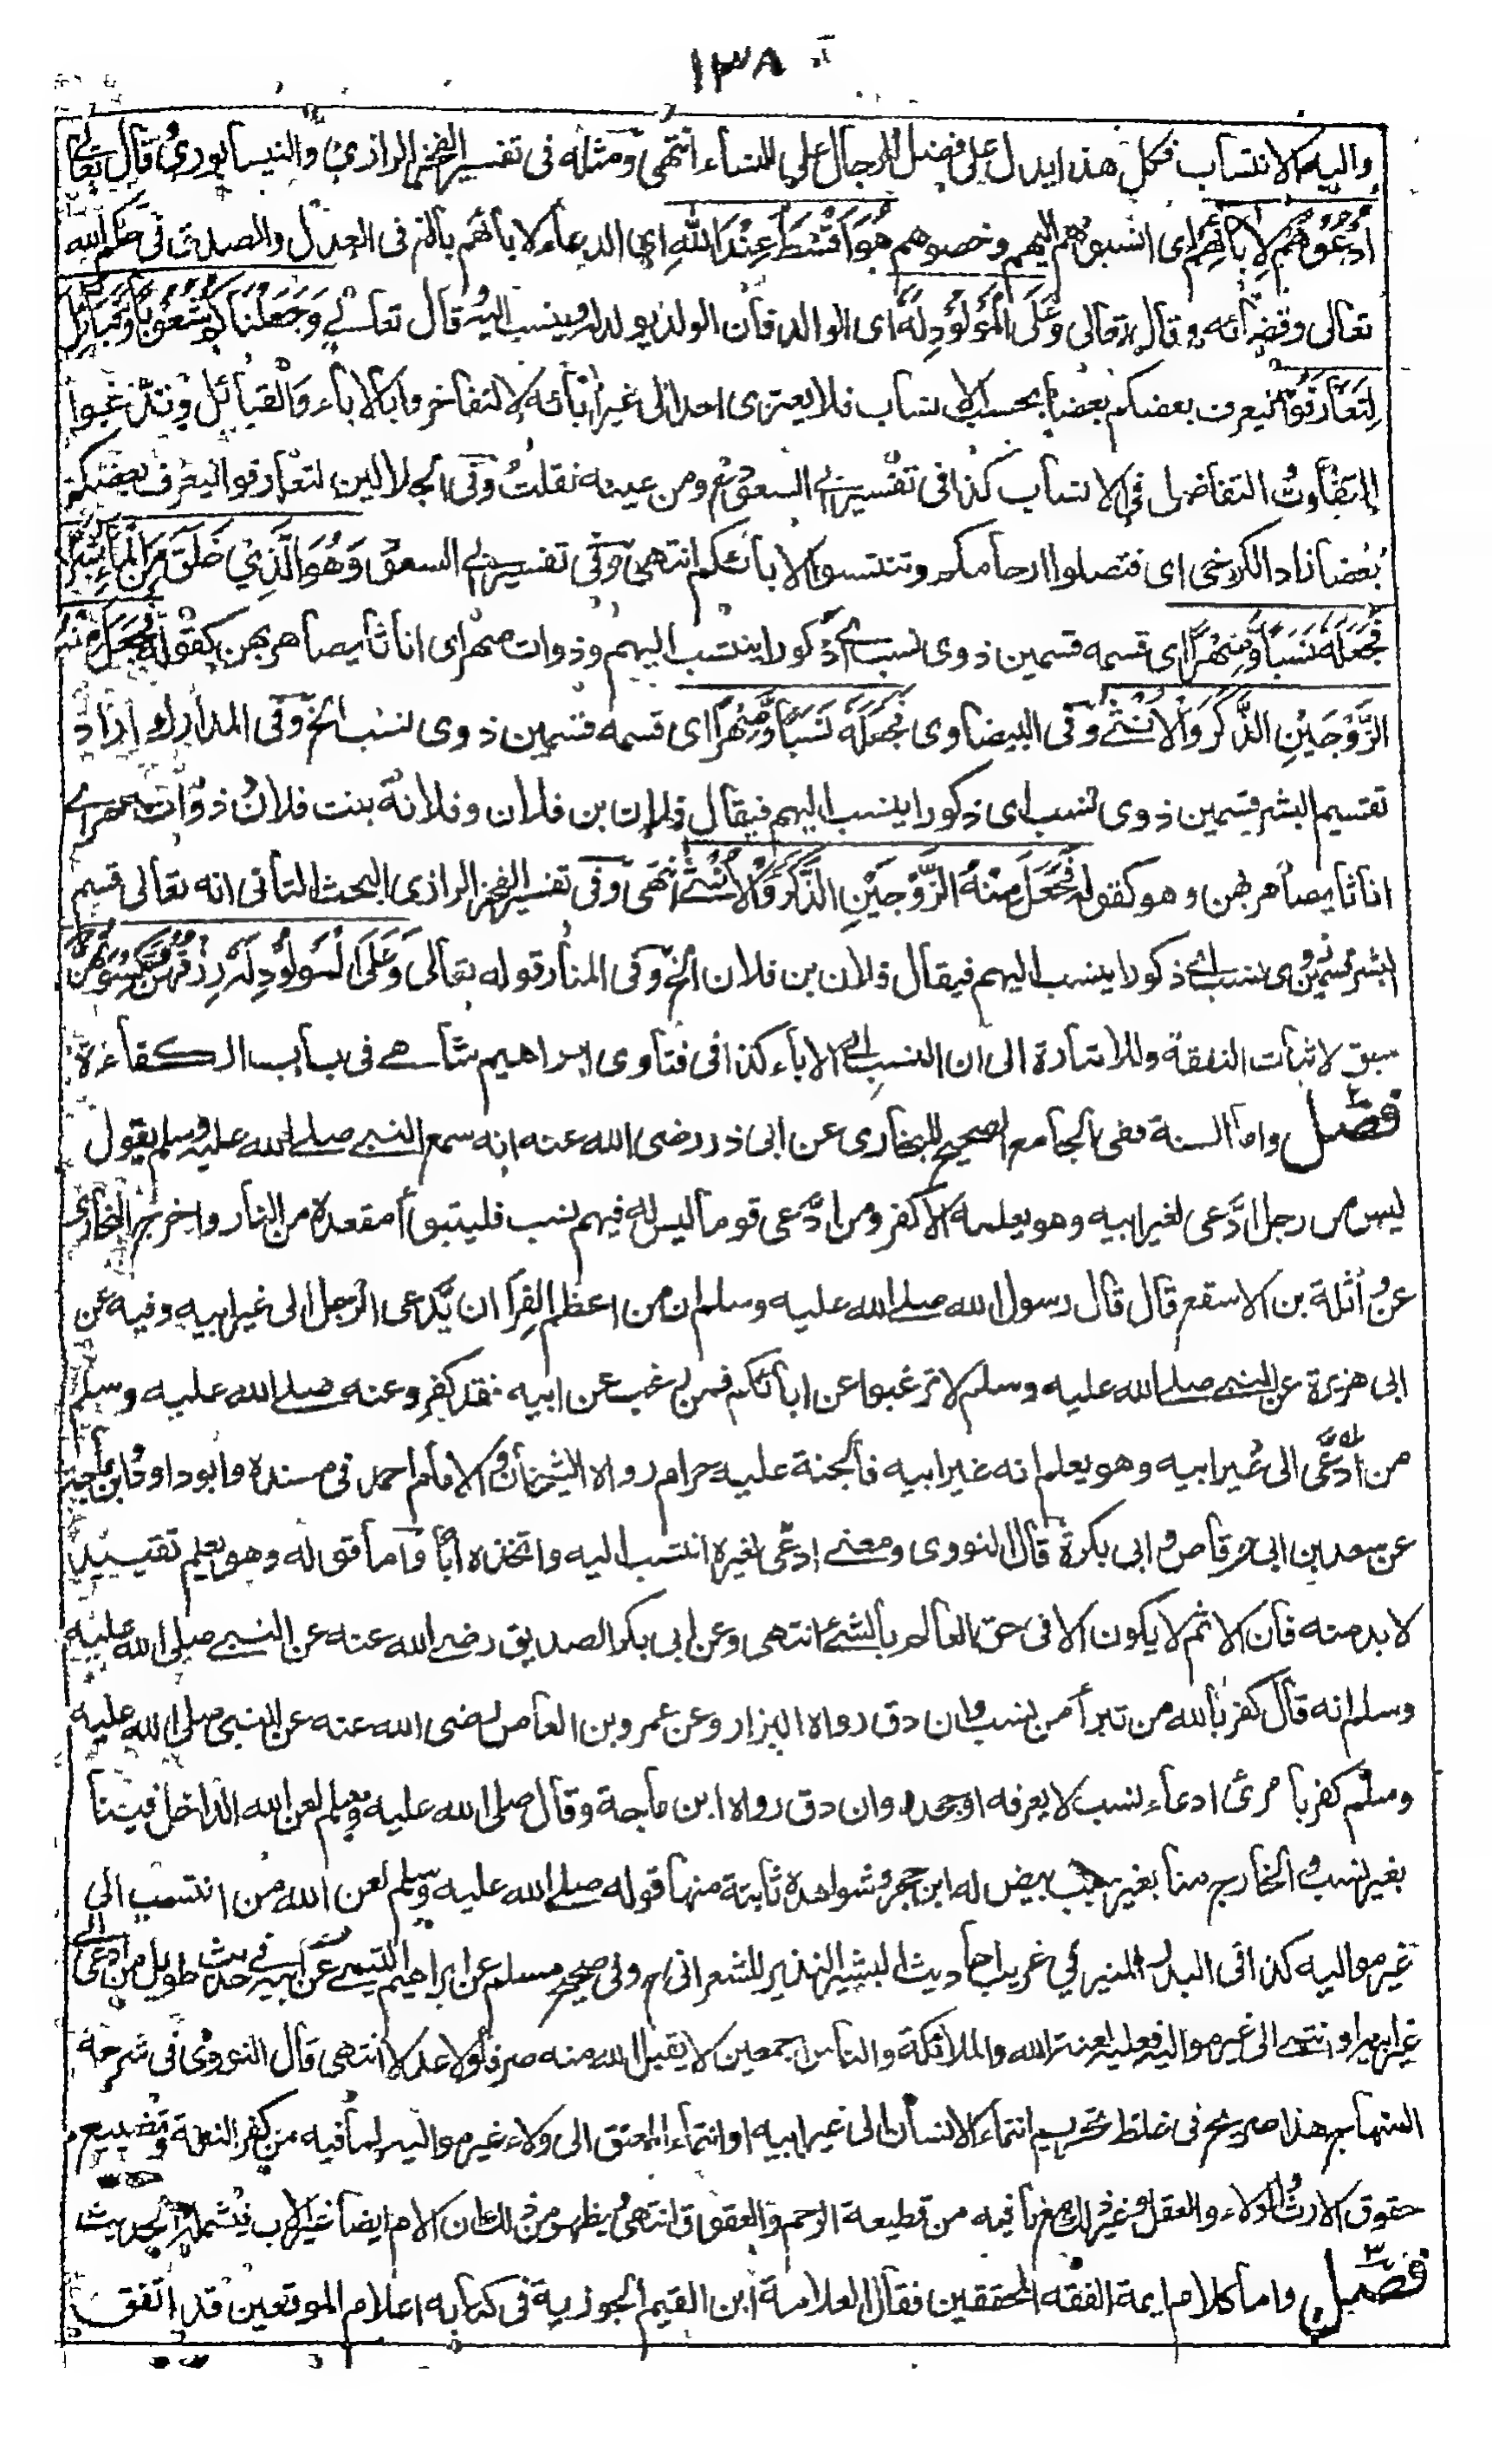 ١٣٨
واليهم الانتساب فكل هذا يدل على فضل الرجال على النساء انتهى ومثله فى تفسير الفخر الرازى والنيسابورى قال تعالى
اُدْعُوْهُمْ لِاٰبَآئِهِمْ اى انسبوهم اليهم وخصوهم هُوَ اَقْسَطُ عِنْدَ اللّٰهِ اى الدعاء لابائهم بالغ فى العدل والصدق فى حكم الله
تعالى وقضائه وقال تعالى وَعَلَى الْمَوْلُوْدِ لَهٗ اى الوالد فان الولد يولد له وينسب اليه قال تعالى وَجَعَلْنَاكُمْ شُعُوْبًا وَّقَبَآئِلَ
لِتَعَارَفُوْا ليعرف بعضكم بعضا بحسب الانساب فلا يعتزى احد الى غير اٰبائه لا لتفاخروا بالاباء والقبائل وتدعوا
التفاوت التفاضل فى الانساب كذا فى تفسير ابى السعود ومن عينه نقلت وفى الجلالين لتعارفوا ليعرف بعضكم
بعضا زاد الكرخى اى فتصلوا ارحامكم وتنتسبوا لابائكم انتهى وفى تفسير ابى السعود وَهُوَ الَّذِيْ خَلَقَ مِنَ الْمَآءِ بَشَرًا
فَجَعَلَهٗ نَسَبًا وَّصِهْرًا اى قسمه قسمين ذوى نسب اى ذكورا ينتسب اليهم وذوات صهر اى اناثا يصاهر بهن كقوله فَجَعَلَ مِنْهُ
الزَّوْجَيْنِ الذَّكَرَ وَالْاُنْثٰى وفى البيضاوى فَجَعَلَهٗ نَسَبًا وَّصِهْرًا اى قسمه قسمين ذوى نسب الخ وفى المدارك اراد
تقسيم البشر قسمين ذوى نسب اى ذكورا ينسب اليهم فيقال فلان بن فلان وفلانة بنت فلان ذوات صهر اى
اناثا يصاهر بهن وهو كقوله فَجَعَلَ مِنْهُ الزَّوْجَيْنِ الذَّكَرَ وَالْاُنْثٰى انتهى وفى تفسير الفخر الرازى البحث الثانى انه تعالى قسم
البشر قسمين ذوى نسب اى ذكورا ينسب اليهم فيقال فلان بن فلان الخ وفى المنار قوله تعالى وَعَلَى الْمَوْلُوْدِ لَهٗ رِزْقُهُنَّ وَكِسْوَتُهُنَّ
سيق لاثبات النفقة وللاشارة الى ان النسب الى الاباء كذا فى فتاوى ابراهيم شاهى فى باب الكفاءة
فصل واما السنة ففى الجامع الصحيح للبخارى عن ابى ذر رضى الله عنه انه سمع النبى صلى الله عليه وسلم يقول
ليس من رجل ادَّعى لغير ابيه وهو يعلمه الا كفر ومن ادَّعى قوما ليس له فيهم نسب فليتبوأ مقعده من النار واخرج البخارى
عن واثلة بن الاسقع قال قال رسول الله صلى الله عليه وسلم ان من اعظم الفِرآ ان يَّدعى الرجل الى غير ابيه وفيه عن
ابى هريرة عن النبى صلى الله عليه وسلم لا ترغبوا عن ابائكم فمن رغب عن ابيه فقد كفر وعنه صلى الله عليه وسلم
من ادَّعى الى غير ابيه وهو يعلم انه غير ابيه فالجنة عليه حرام رواه الشيخان والامام احمد فى مسنده وابو داود وابن ماجة
عن سعد بن ابى وقاص وابى بكرة قال النووى ومعنى ادّعى لغيره انتسب اليه واتخذه ابًا واما قوله وهو يعلم تقييد
لا بد منه فان الاثم لا يكون الا فى حق العالم بالشئ انتهى وعن ابى بكر الصديق رضى الله عنه عن النبى صلى الله عليه
وسلم انه قال كفر بالله من تبرأ من نسب وان دق رواه البزار وعن عمرو بن العاص رضى الله عنه عن النبى صلى الله عليه
وسلم كفر بامرئ ادعاء نسب لا يعرفه او جحده وان دق رواه ابن ماجة وقال صلى الله عليه وسلم لعن الله الداخل فينا
بغير نسب والخارج منا بغير سبب بيض له ابن حجر وشواهده ثابتة منها قوله صلى الله عليه وسلم لعن الله من انتسب الى
غير مواليه كذا فى البدر المنير فى غريب احاديث البشير النذير للشعرانى وفى صحيح مسلم عن ابراهيم التيمى عن ابيه فى حديث طويل من ادعى الى
غير ابيه او انتمى الى غير مواليه فعليه لعنة الله والملائكة والناس اجمعين لا يقبل الله منه صرفا ولا عدلا انتهى قال النووى فى شرحه
المنهاج هذا صريح فى غلظ تحريم انتماء الانسان الى غير ابيه او انتماء المعتق الى ولاء غير مواليه لما فيه من كفر النعمة وتضييع
حقوق الارث والولاء والعقل وغير ذلك مع ما فيه من قطيعة الرحم والعقوق انتهى يظهر من ذلك ان الام ايضا غير الاب فيشمله الحديث
فصل واما كلام ايمة الفقه المحققين فقال العلامة ابن القيم الجوزية فى كتابه اعلام الموقعين قد اتفق